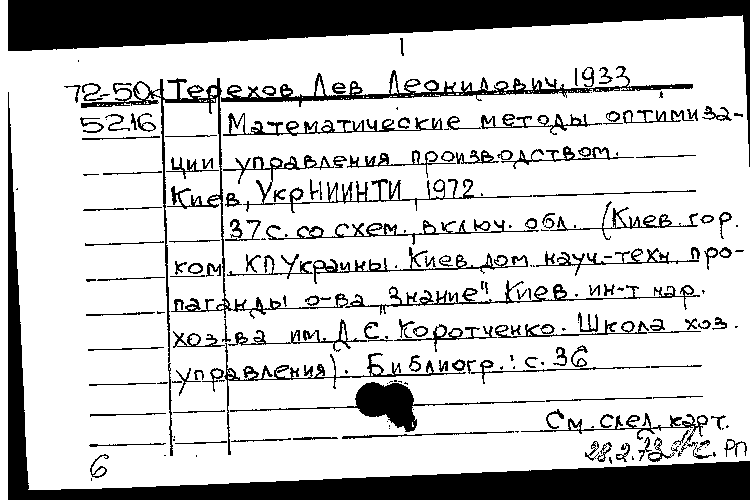 1
72-50к Терехов, Лев Леонидович, 1933
5216 Математические методы оптимиза-
ции управления производством.
Киев, УкрНИИНТИ, 1972.
37 с. со схем., включ. обл. (Киев. гор.
ком. КП Украины. Киев. дом науч.-техн. про-
паганды о-ва „Знание". Киев. ин-т нар.
хоз-ва им. Д.С. Коротченко. Школа хоз.
управления). Библиогр.: с. 36
См. след. карт.
6 28.2.73 РП